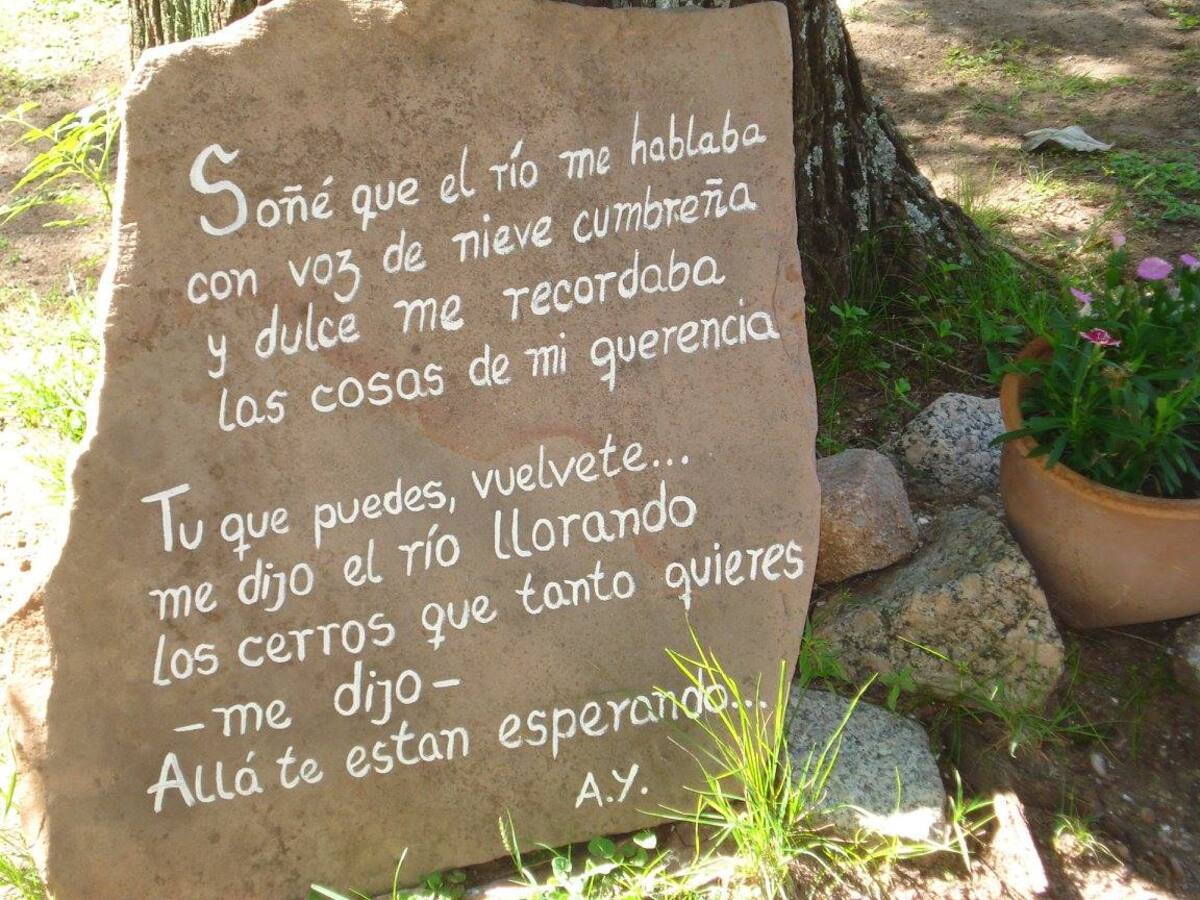 Soñé que el río me hablaba
con voz de nieve cumbreña
y dulce me recordaba
las cosas de mi querencia
Tu que puedes, vuelvete...
me dijo el río llorando
los cerros que tanto quieres
-me dijo-
Allá te estan esperando...
A.Y.